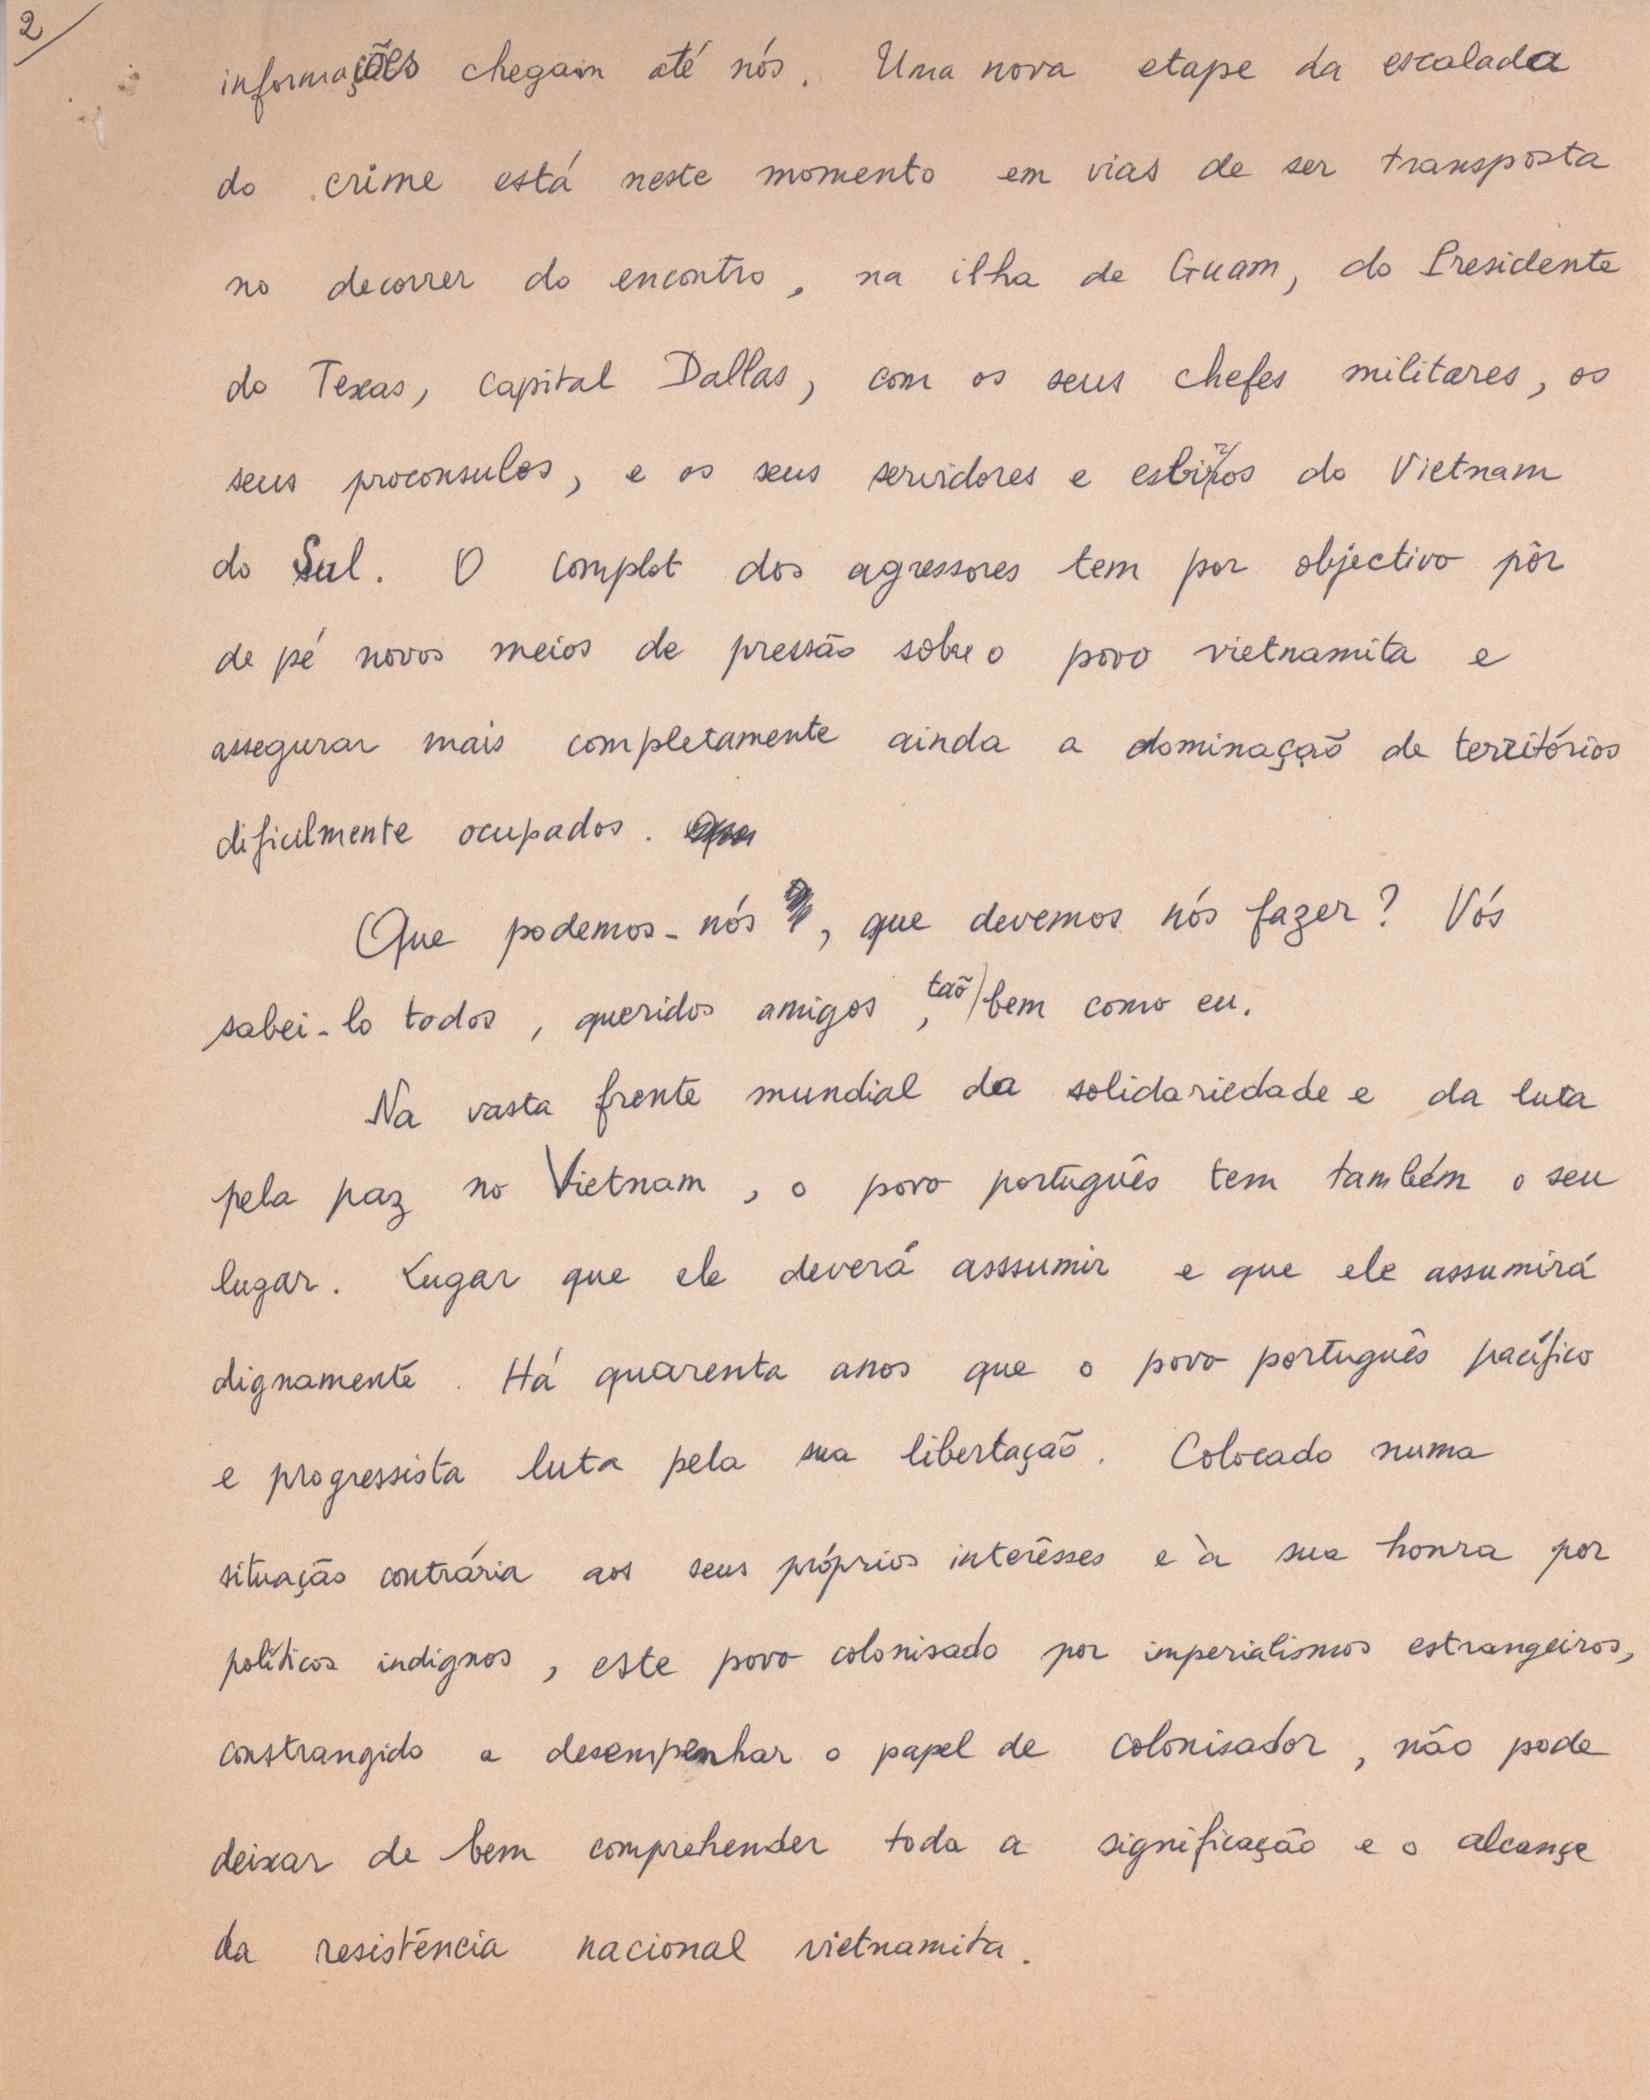 2/
informações chegam até nós. Uma nova etape da escalada
do crime está neste momento em vias de ser transposta
no decorrer do encontro, na ilha de Guam, do Presidente
do Texas, capital Dallas, com os seus chefes militares, os
seus proconsules, e os seus servidores e esbirros do Vietnam
do Sul. O complot dos agressores tem por objectivo pôr
de pé novos meios de pressão sobre o povo vietnamita e
assegurar mais completamente ainda a dominação de territórios
dificulmente ocupados.
Que podemos-nós, que devemos nós fazer? Vós
sabei-lo todos, queridos amigos, tão bem como eu.
Na vasta frente mundial da solidariedade e da luta
pela paz no Vietnam, o povo português tem também o seu
lugar. Lugar que ele deverá asssumir e que ele assumirá
dignamente. Há quarenta anos que o povo português pacífico
e progressista luta pela sua libertação. Colocado numa
situação contrária aos seus próprios interêsses e à sua honra por
políticos indignos, este povo colonisado por imperialismos estrangeiros,
constrangido a desempenhar o papel de colonisador, não pode
deixar de bem comprehender toda a significação e o alcançe
da resistência nacional vietnamita.